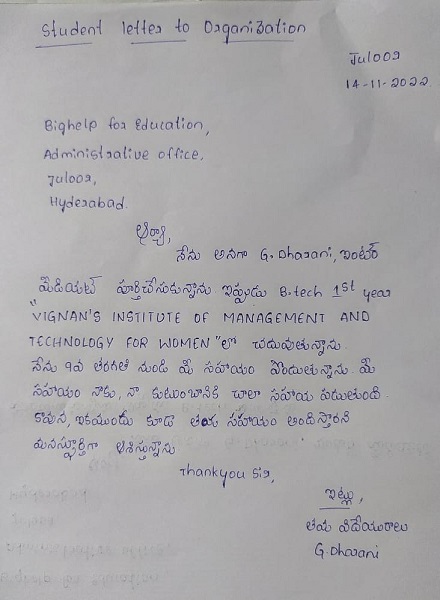 Student letter to Organization
Juloor
14-11-2022
Bighelp for Education,
Administrative office,
Juloor,
Hyderabad.
ఆర్యా,
నేను అనగా G. Dharani, ఇంటర్
మీడియట్ పూర్తిచేసుకున్నాను ఇప్పుడు B.tech 1st year
"VIGNAN'S INSTITUTE OF MANAGEMENT AND
TECHNOLOGY FOR WOMEN" లో చదువుతున్నాను.
నేను 9వ తరగతి నుండి మీ సహాయం పొందుతున్నాను. మీ
సహాయం నాకు, నా కుటుంబానికి చాలా సహాయ పడుతుంది.
కావున, ఇకముందు కూడా తమ సహాయం అందిస్తారని
మనస్ఫూర్తిగా ఆశిస్తున్నాను
Thankyou Sir,
ఇట్లు,
తమ విధేయురాలు
G. Dharani